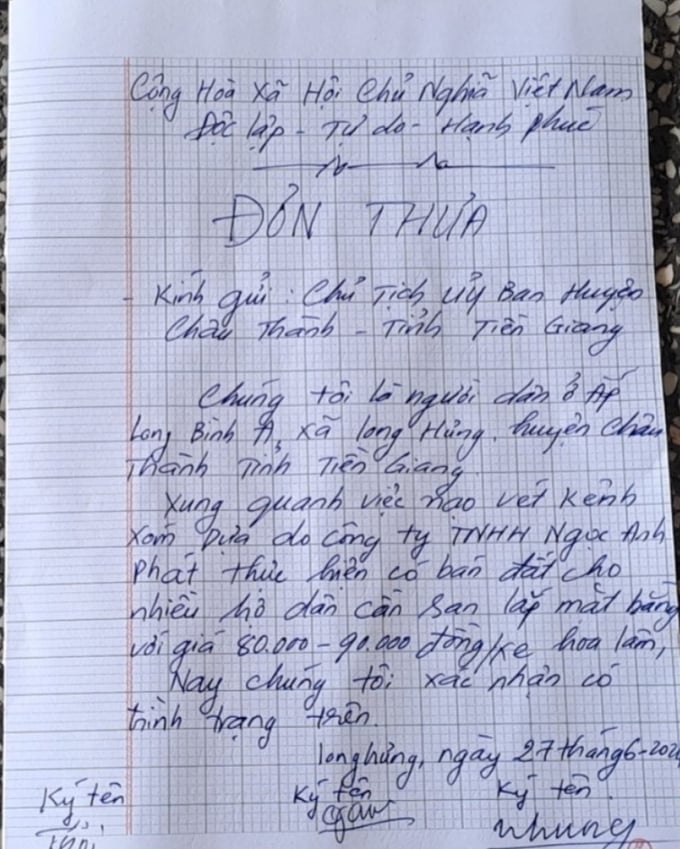 Cộng Hoà Xã Hội Chủ Nghĩa Việt Nam
Độc lập - Tự do - Hạnh phúc
ĐƠN THƯA
- Kính gửi : Chủ Tịch Uỷ Ban Huyện
Châu Thành - Tỉnh Tiền Giang
Chúng tôi là người dân ở Ấp
Long Bình A, xã Long Hưng, huyện Châu
Thành Tỉnh Tiền Giang.
Xung quanh việc nạo vét kênh
Xóm Dừa do công ty TNHH Ngọc Anh
Phát thực hiện có bán đất cho
nhiều hộ dân cần san lấp mặt bằng
với giá 80.000 - 90.000 đồng/xe hoa lâm,
Nay chúng tôi xác nhận có
tình trạng trên.
Long hưng, ngày 27 tháng 6 -
Ký tên Ký tên Ký tên
nhung